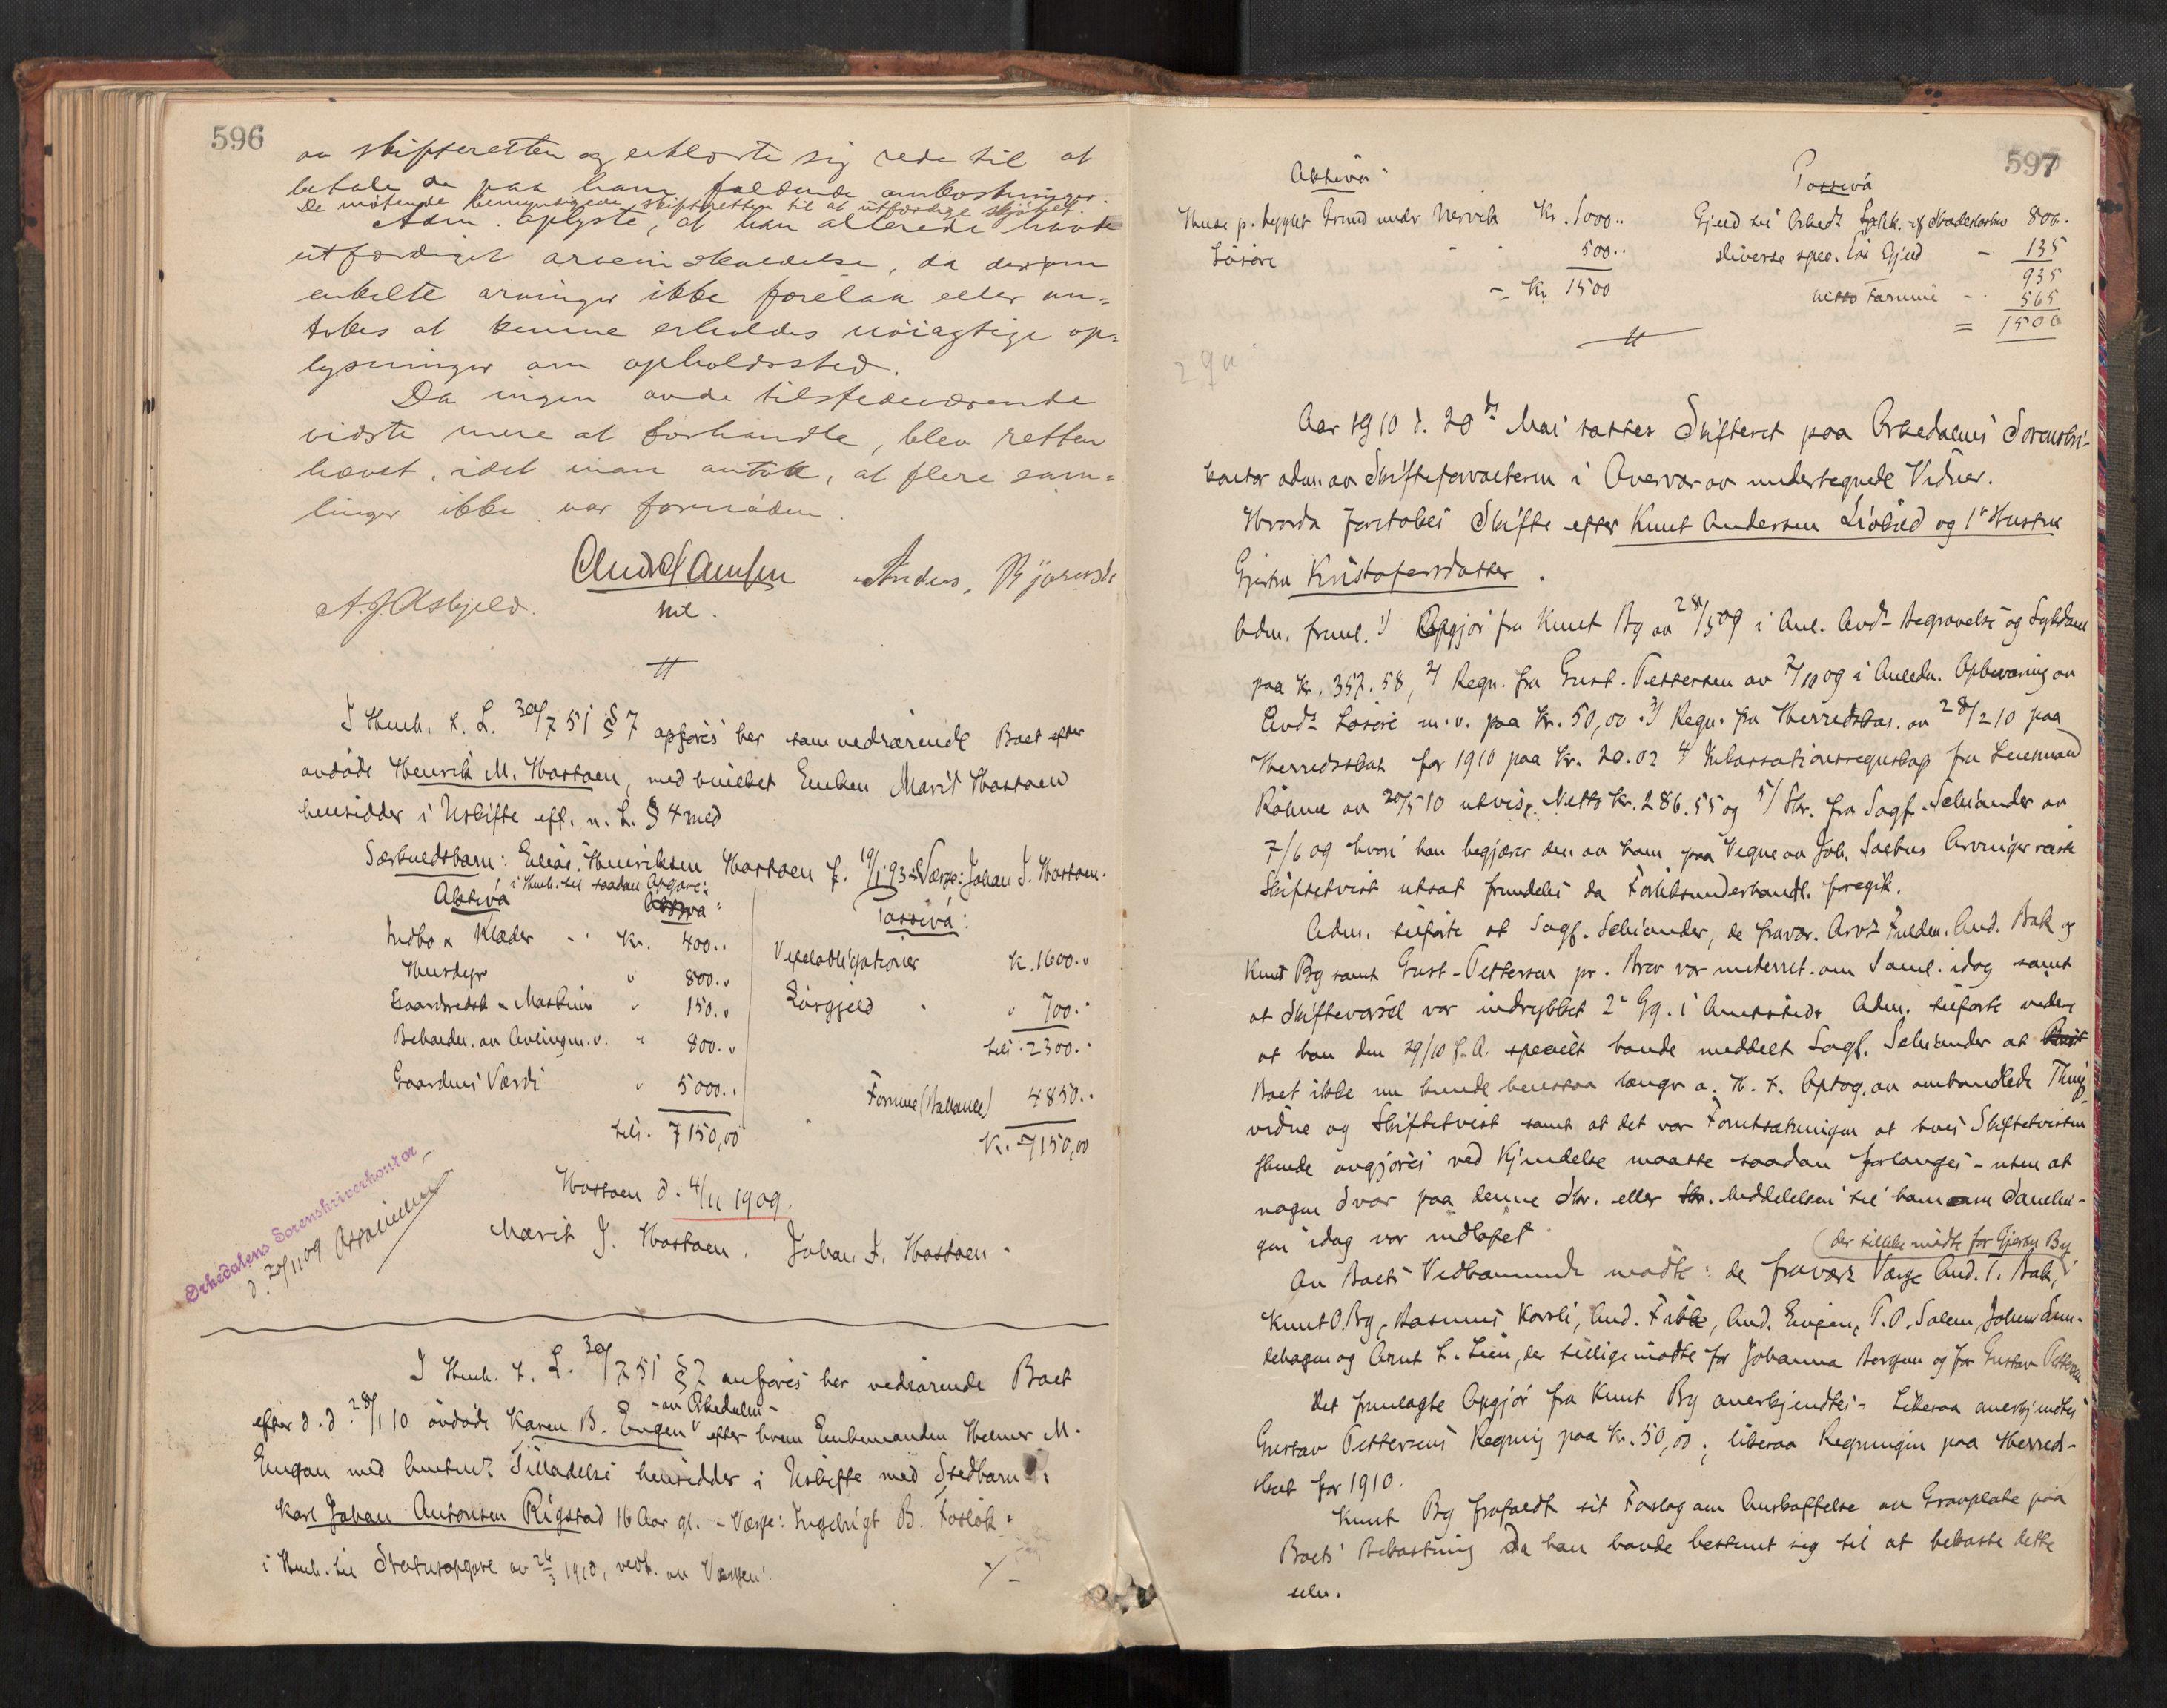 596
av skifteretten og erklærte sig rede til at
betale de paa ham faldende omkostninger.
De møtende bemyndigede skifteretten til at utfærdige skjøtet.
Adm. oplyste, at han allerede havde
utfærdiget arveindkaldelse, da der om
enkelte arvinger ikke forelaa eller an-
tokes at kunne erholdes nöiagtige op-
lysninger om opholdssted.
Da ingen av de tilstedeværende
vidste mere at forhandle, blev retten
hævet, idet man antok, at flere sam-
linger ikke var fornöden.
Anders Bjørnsli
A. J. Asbjeld.
I Henh. t. L. 30/7 51 § 7 anføres her som vedrørende Boet efter
avdøde Henrik M. Hostoen, med hvilket Enken Marit Hostoen
hensidder i Uskifte eft. n. L. § 4 med
Særkuldsbarn: Elias Henriksen Hostoen f. 19/1 93 - Værge: Johan J. Hostoen.
i Henh. til saadan Opgave:
Aktiva
Passiva:
Indbo & Klæder - Kr. 400..
Vexelobligationer K. 1600..
Husdyr " 800..
Løsgjeld " 700..
Gaardredsk & Maskiner " 150..
tils. 2300..
Beholdn. av Avling m.v. " 800..
Gaardens Værdi " 5000..
Formue (Ballance) 4850..
tils. 7150,00
K. 7150,00
Hostoen d. 4/11 1909.
Marit J. Hostoen. Johan J. Hostoen.
Orkedalens Sorenskriverkontor
d. 20/11 09
I Henh. t. L. 30/7 51 § 7 anføres her vedrørende Boet
- av Orkedalen -
efter d. d. 28/1 10 avdøde Karen B. Engen efter hvem Enkemanden Helmer M.
Engan med Amtm's Tilladelse hensidder i Uskifte med Stedbarn:
Karl Johan Antonsen Rigstad 16 Aar gl. - Værge: Ingebrigt B. Foslök.
i Henh. til Statusopgave av 26/3 1910, vedt. av Værgen:
597
Aktiva
Passiva
Huse p. bygslet Grund under Nervik Kr. 1000..
Gjeld til Orkedt Spbk. & Brandekasse 800.
Løsøre - 500..
diverse spec. Løs Gjeld - 135
935
= Kr. 1500
netto Formue - 565
= 1500
Aar 1910 d. 20de Mai sattes Skifteret paa Orkedalens Sorenskr.
kontor adm. av Skifteforvalteren i Overvær av undertegnede Vidner.
Hvorda foretokes Skifte efter Knut Andersen Liøkjed og 1' Hustru
Gjertru Kristofersdatter.
Adm. freml. 1) Opgjör fra Knut By av 28/5 09 i Anl. Avd's Begravelse og Sykdom
paa Kr. 357.58, 2) Regn. fra Gust. Pettersen av 7/10 09 i Anledn. Opbevaring av
Avd's Løsøre m.v. paa Kr. 50,00. 3) Regn. fra Herredskas. av 28/2 10 paa
Herredsskat for 1910 paa Kr. 20.02 4) Inkassationsregnskap fra Lensmand
Röhme av 20/5 10 utvis. Netto Kr. 286.55 og 5) Skr. fra Sagf. Schiander av
7/6 09 hvori han begjærer den av ham paa Vegne av Joh. Saebus Arvinger reiste
Skiftetvist utsat fremdeles da Forliksunderhandl. foregik.
Adm. tilførte at Sagf. Schiander, de fravær. Arv's Fuldm. And. Bak og
Knut By samt Gust. Pettersen pr. Brev var underret. om Saml. idag samt
at Skiftevarsel var indrykket 2 Gg. i Amtstid. Adm. tilførte videre
at han den 29/10 f. A. specielt havde meddelt Sagf. Schiander at
Boet ikke nu kunde henstaa længer a. H. t. Optag. av omhandlede Thing-
vidne og Skiftetvist samt at det var Forutsætningen at hvis Skiftetvisten
skulde avgjøres ved Kjendelse maatte saadan forlanges - uten at
nogen Svar paa denne Skr. eller Meddelelsen til ham om Samlin-
gen idag var indløpet.
(der tillike mødte for Gjertru By
Av Boets Vedkommende mødte: de fravær's Værge And. T. Bak,
Knut O. By, Rasmus Korsli, And. Fikke, And. Engen, T. O. Solem, Johan Sun-
dehagen og Arnt L. Lien, der tillige mødte for Johanna Bergum og for Gustav Pettersen
Det fremlagte Opgjör fra Knut By anerkjendtes - Likesaa anerkjendtes
Gustav Pettersens Regning paa Kr. 50,00; likesaa Regningen paa Herred-
skat for 1910.
Knut By frafaldt sit Forslag om Anskaffelse av Gravplate paa
Boets Bekostning da han havde bestemt sig til at bekoste dette
selv.